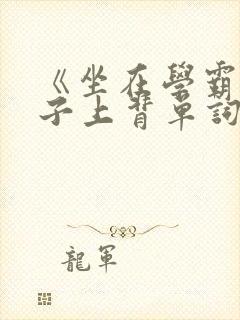 《坐在學霸
子上背單詞
龍軍